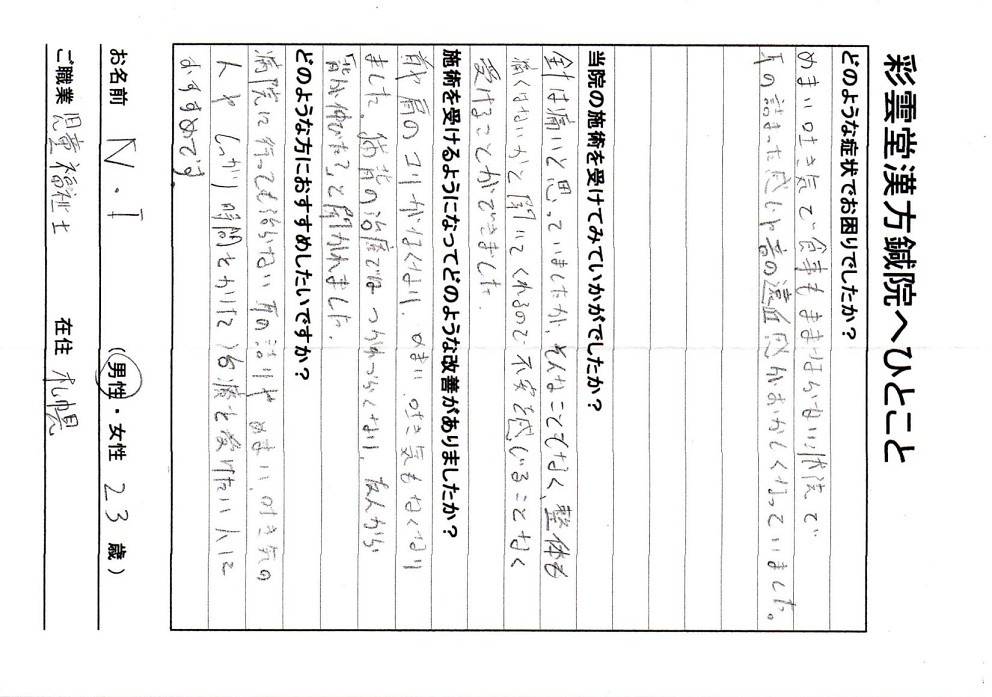 彩雲堂漢方鍼院へひとこと
どのような症状でお困りでしたか？
めまい吐き気で食事もままならない状態で
耳の詰まった感じや音の遠近感がおかしくなっていました。
当院の施術を受けてみていかがでしたか？
針は痛いと思っていましたが、そんなことなく、整体も
痛くはないかと聞いてくれるので不安を感じることなく
受けることができました。
施術を受けるようになってどのような改善がありましたか？
首や肩のコリがなくなり、めまい、吐き気もなくなり
ました。猫背の治療では つかれづらくなり、友人から
「背が伸びた?」と聞かれました。
どのような方におすすめしたいですか？
病院に行っても治らない耳の詰りや めまい、吐き気の
人や しっかり時間をかけた治療を受けたい人に
おすすめです
お名前 N・T (男性・女性 23 歳)
ご職業 児童福祉士 在住 札幌